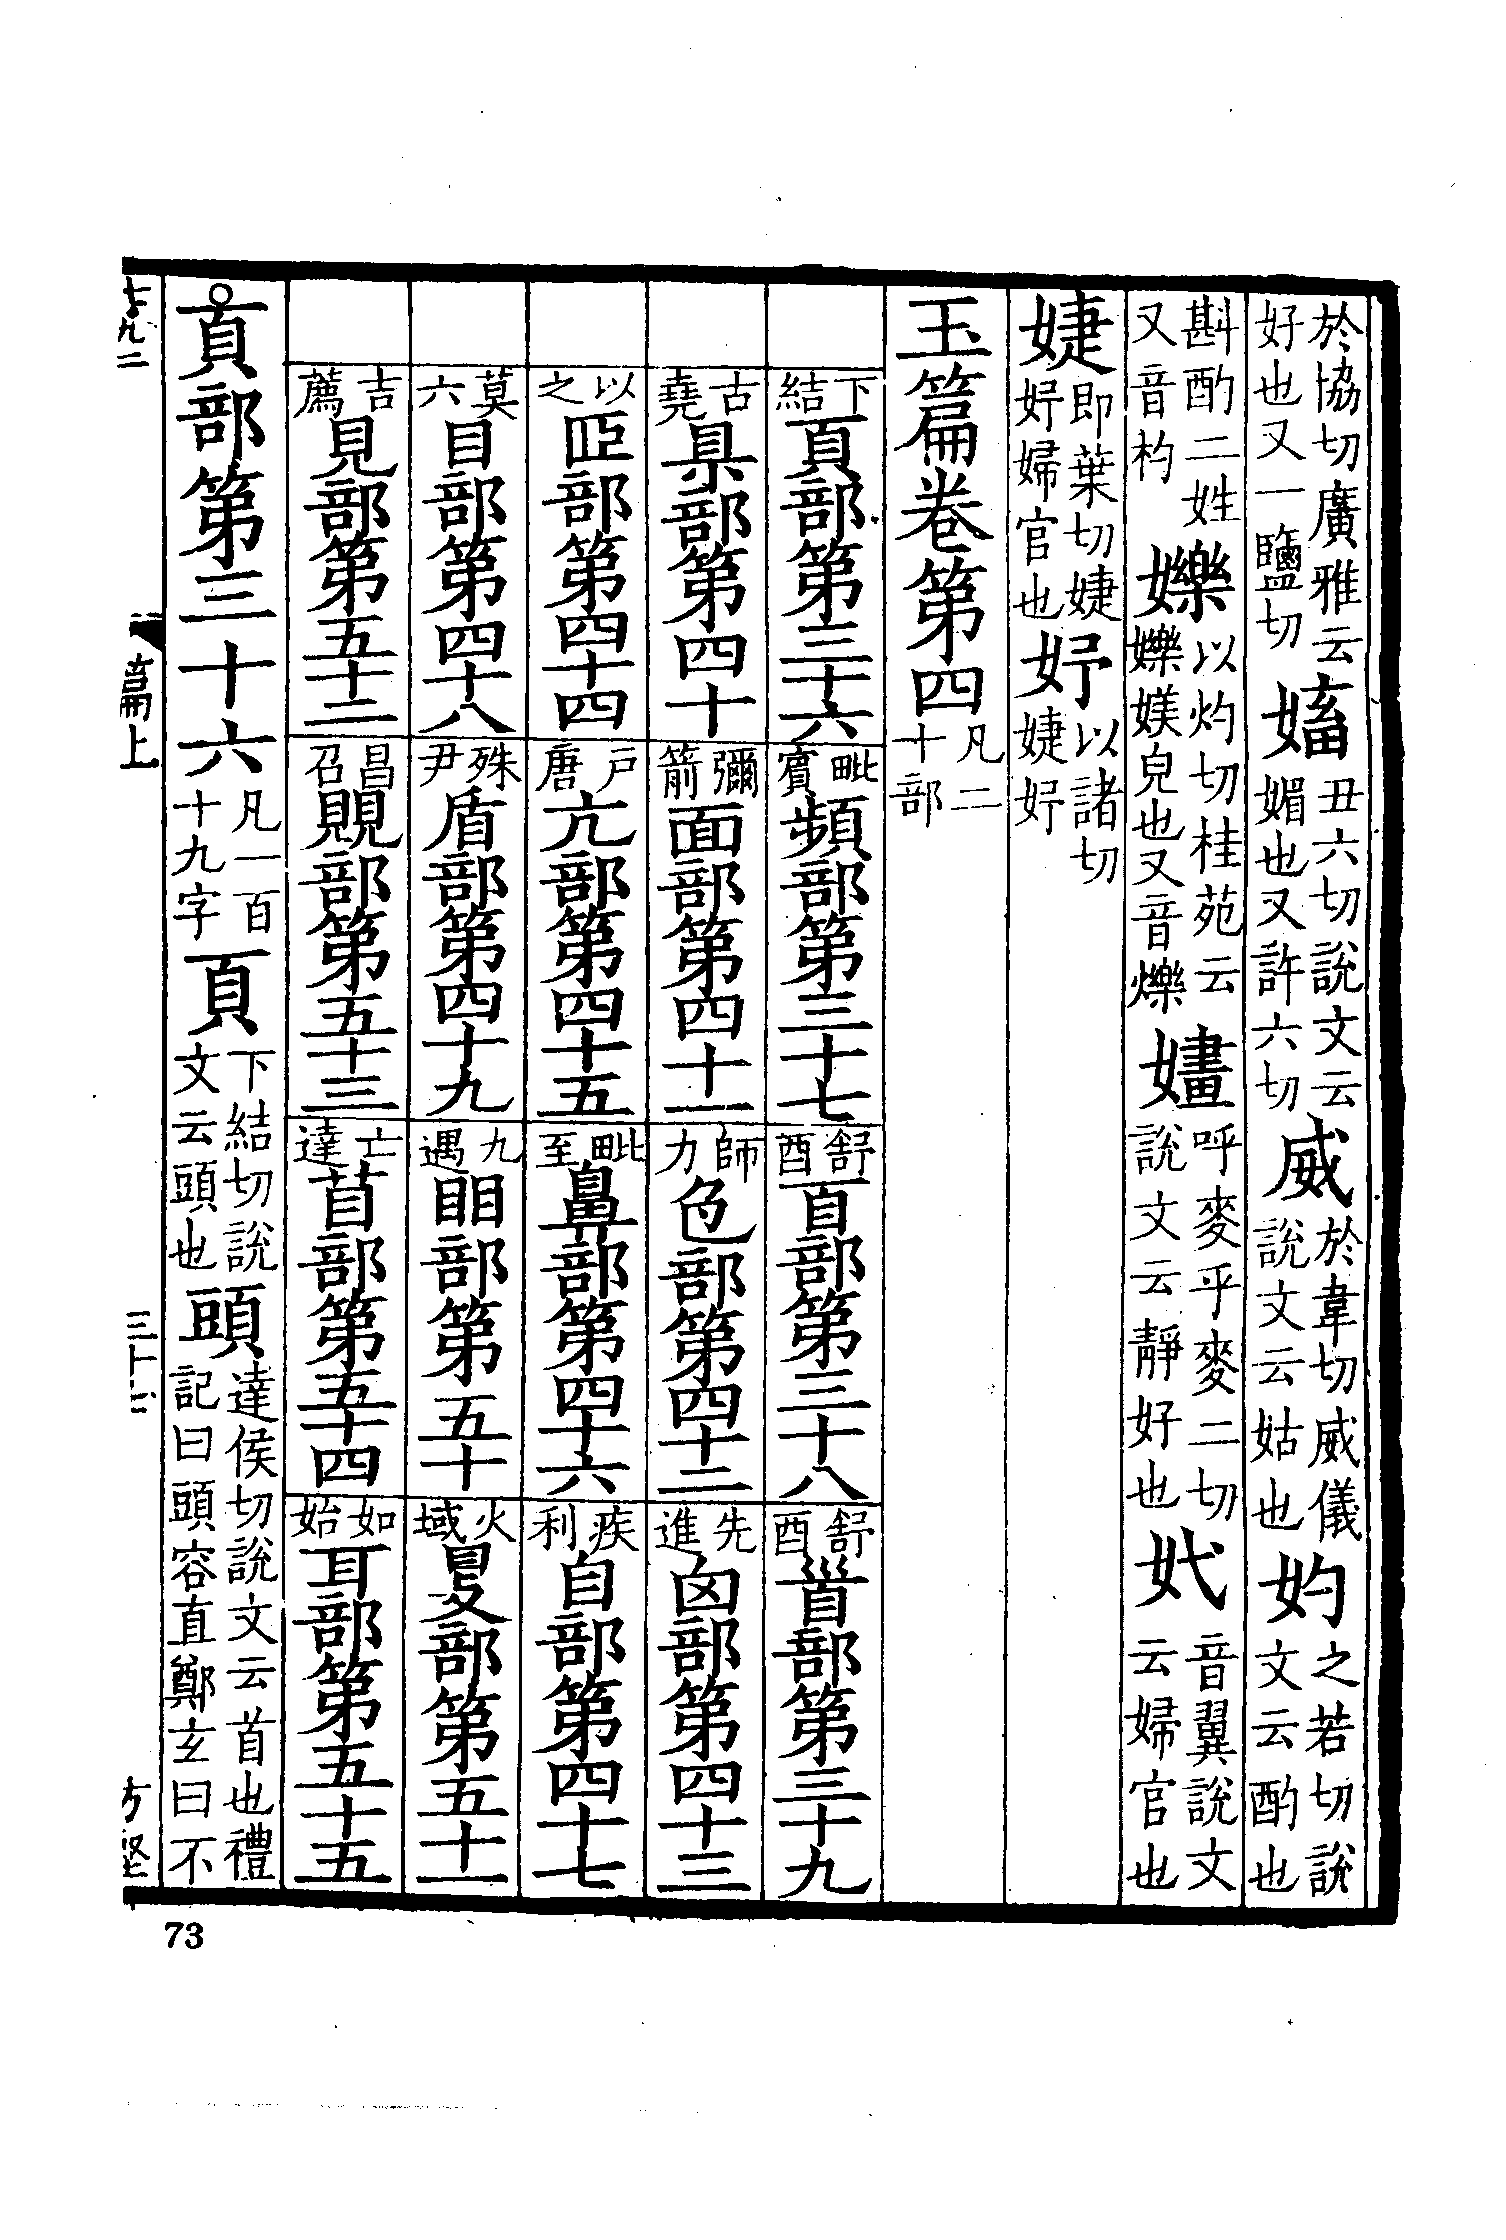 於協切廣雅云好也又一鹽切 嬌丑六切說文云媚也又許六切 威於韋切威儀說文云姑也 妁之若切說文云酌也
斟酌二姓又音杓 嬫以灼切桂苑云嬫媄皃也又音爍 嫿呼麥乎麥二切說文云靜好也 妷音翼說文云婦官也
婕即葉切婕妤婦官也 妤以諸切婕妤
玉篇卷第四凡二十部
下結頁部第三十六 毗賓頻部第三十七 舒酉𦣻部第三十八 舒酉首部第三十九
古堯県部第四十 彌箭面部第四十一 師力色部第四十二 先進囟部第四十三
以之𦣞部第四十四 戶唐亢部第四十五 毗至鼻部第四十六 疾利自部第四十七
莫六目部第四十八 殊尹盾部第四十九 九遇䀠部第五十 火域𡕥部第五十一
吉薦見部第五十二 昌召覞部第五十三 亡達苜部第五十四 如始耳部第五十五
頁部第三十六凡一百十九字 頁下結切說文云頭也 頭達侯切說文云首也禮記曰頭容直鄭玄曰不
篇上
73